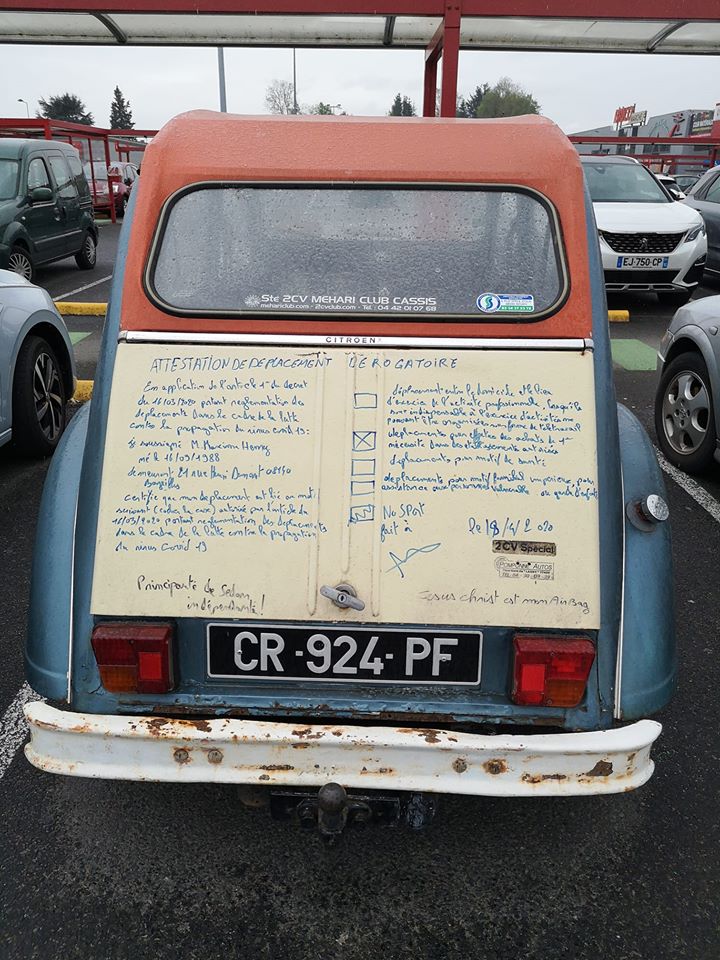 Ste 2CV MEHARI CLUB CASSIS
mehariclub.com - 2cvclub.com - Tel : 04 42 01 07 68
CITROËN
EJ-750-CP
ATTESTATION DE DEPLACEMENT DEROGATOIRE
En application de l'article 1er du decret
du 16/03/2020 portant reglementation des
deplacements dans le cadre de la lutte
contre la propagation du virus Covid 19:
Je soussigné M. Maxime Henry
né le 16/09/1988
demeurant 21 rue Henri Dunant 08140
Bazeilles
certifie que mon deplacement est lié au motif
suivant (cocher la case) autorisé par l'article du
16/03/2020 portant reglementation des deplacements
dans le cadre de la lutte contre la propagation
du virus Covid 19
Principauté de Sedan,
indépendante!
déplacements entre le domicile et le lieu
d'exercice de l'activité professionnelle, lorsqu'ils
sont indispensables à l'exercice d'activités ne
pouvant être organisées sous forme de télétravail
deplacements pour effectuer des achats de 1ère
nécessité dans des établissements autorisés
deplacements pour motif de santé
deplacements pour motif familial impérieux, pour
assistance aux personnes vulnerables ou garde d'enfants
No SPORT
fait à
le 18/4/2020
2CV Spécial
POMPONNE AUTOS
Jesus christ est mon AirBag
CR-924-PF